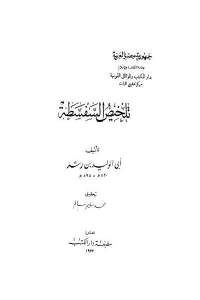 جمهورية مصر العربية
دار الكتب والوثائق القومية
مركز تحقيق التراث
تلخيص السفسطة
تأليف
أبي الوليد بن رشد
تحقيق
محمد سليم سالم
مطبعة دار الكتب